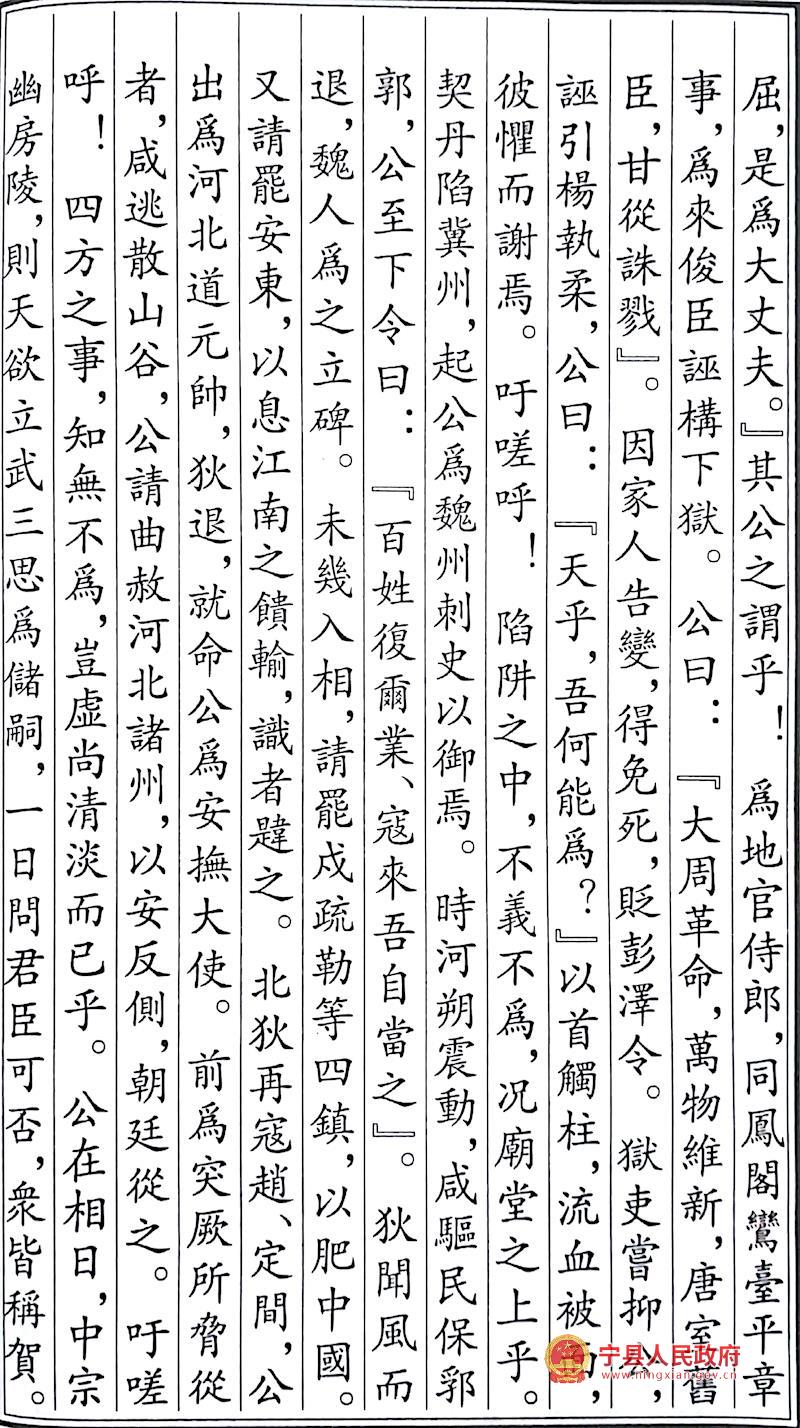 屈，是爲大丈夫。』其公之謂乎！　爲地官侍郎，同鳳閣鸞臺平章
事，爲來俊臣誣構下獄。　公曰：『大周革命，萬物維新，唐室舊
臣，甘從誅戮』。　因家人告變，得免死，貶彭澤令。　獄吏嘗抑公，
誣引楊執柔，公曰：『天乎，吾何能爲？』以首觸柱，流血被面，
彼懼而謝焉。　吁嗟呼！　陷阱之中，不義不爲，况廟堂之上乎。
契丹陷冀州，起公爲魏州刺史以御焉。　時河朔震動，咸驅民保郛
郭，公至下令曰：『百姓復爾業、寇來吾自當之』。　狄聞風而
退，魏人爲之立碑。　未幾入相，請罷戍疏勒等四鎮，以肥中國。
又請罷安東，以息江南之饋輸，識者韙之。　北狄再寇趙、定間，公
出爲河北道元帥，狄退，就命公爲安撫大使。　前爲突厥所脅從
者，咸逃散山谷，公請曲赦河北諸州，以安反側，朝廷從之。　吁嗟
呼！　四方之事，知無不爲，豈虛尚清淡而已乎。　公在相日，中宗
幽房陵，則天欲立武三思爲儲嗣，一日問君臣可否，衆皆稱賀。
宁县人民政府
www.ningxian.gov.cn